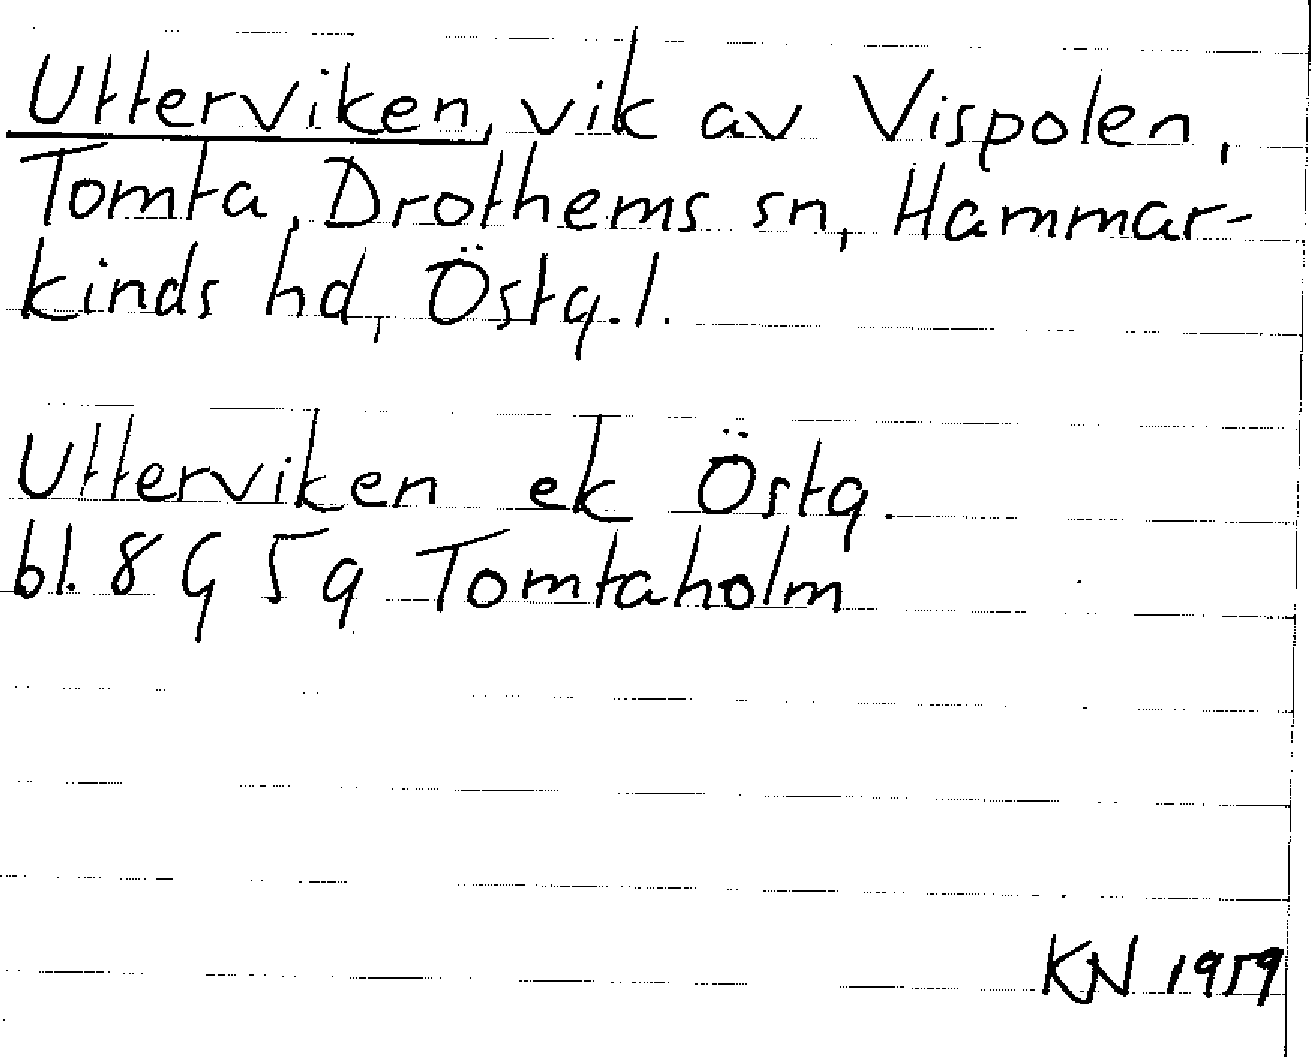 Utterviken, vik av Vispolen,
Tomta, Drothems sn, Hammar-
kinds hd, Östg.l.
Utterviken ek Östg.
bl. 8 G 5g Tomtaholm
KN 1959